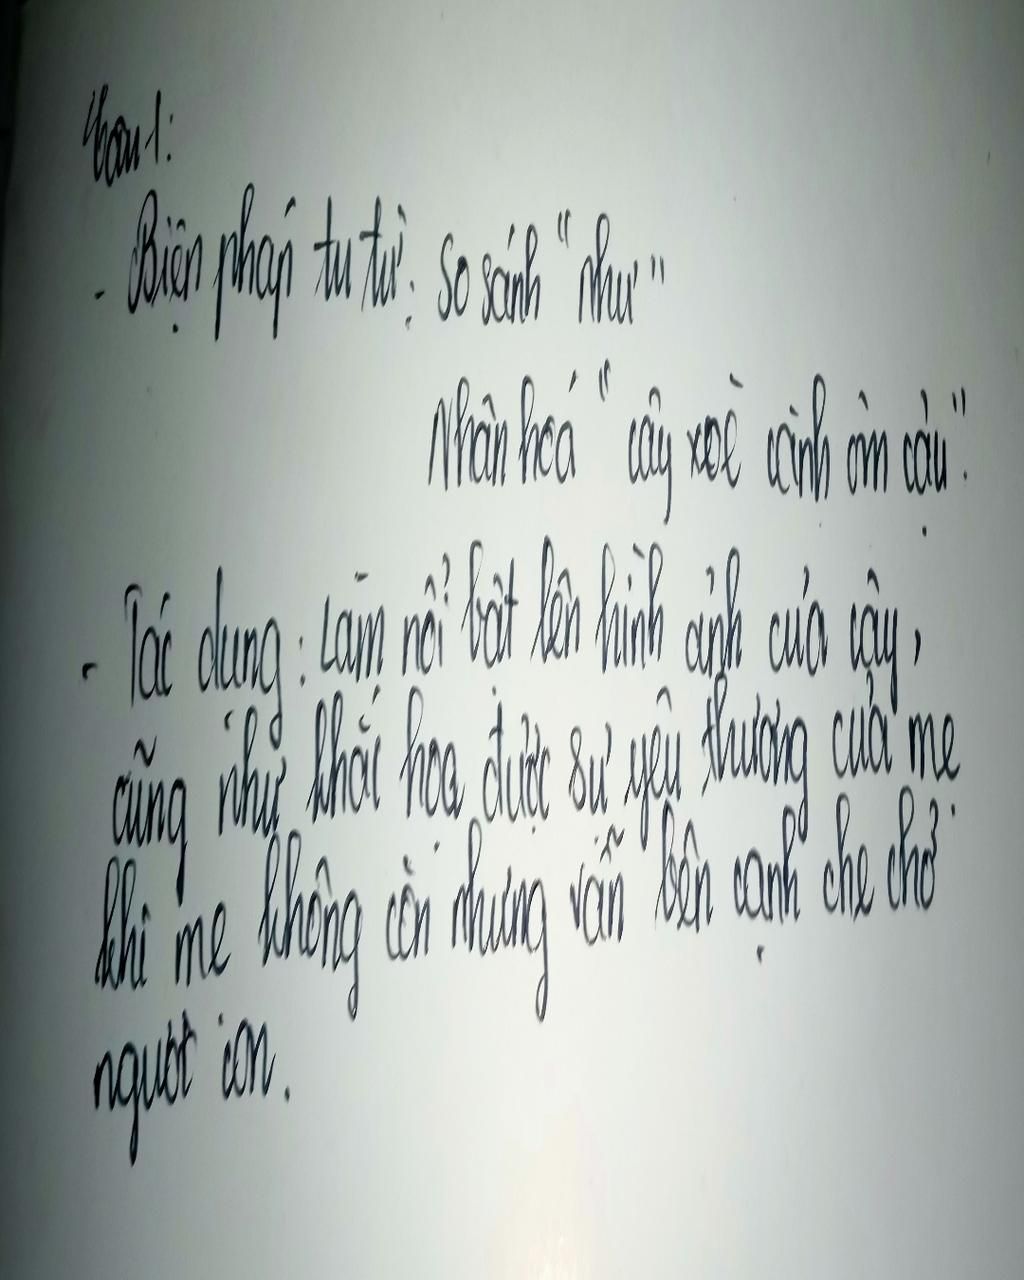 Câu 1:
- Biện pháp tu từ: So sánh "như"
Nhân hoá "cây xoè cành ôm cậu".
- Tác dụng: Làm nổi bật lên hình ảnh của cây,
cũng như khắc hoạ được sự yêu thương của mẹ
khi mẹ không còn nhưng vẫn bên cạnh che chở
người con.